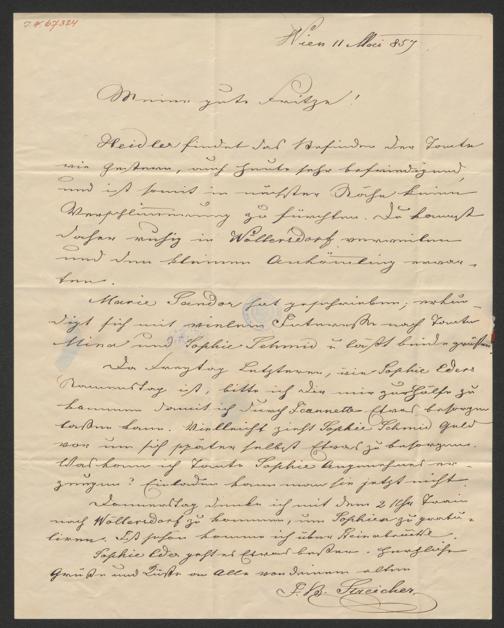 I.N. 67324
Wien 11 Mai 857
Meine gute Fritze!
Heidler findet das Befinden der Tante
wie gestern, auch heute sehr befriedigend,
und ist somit in nächster Nähe keine
Verschlimmerung zu fürchten. Du kannst
daher ruhig in Wöllersdorf verweilen
und den kleinen Ankömmling erwar-
ten.
Marie Sandor hat geschrieben, erkun-
digt sich mit vielem Interesse nach Tante
Mina und Sophie Schmid u läßt beide grüßen.
Da Freytag Letzterer, wie Sophie Eders
Namenstag ist, bitte ich Dir mir zur Hülfe zu
kommen damit ich durch Jeannette Etwas besorgen
laßen kann. Vielleicht zieht Sophie Schmid Geld
vor um sich später selbst Etwas zu besorgen.
Was kann ich Tante Sophie Angenehmes er-
zeugen? Einladen kann man sie jetzt nicht.
Donnerstag denke ich mit dem 2 Uhr Train
nach Wöllersdorf zu kommen, um Sophien zu gratu-
liren. Ist schon komme ich über Steinabrückl.
Sophie Eder geht es Etwas beßer. Herzliche
Grüße und Küße an Alle von deinem alten
J. B. Streicher